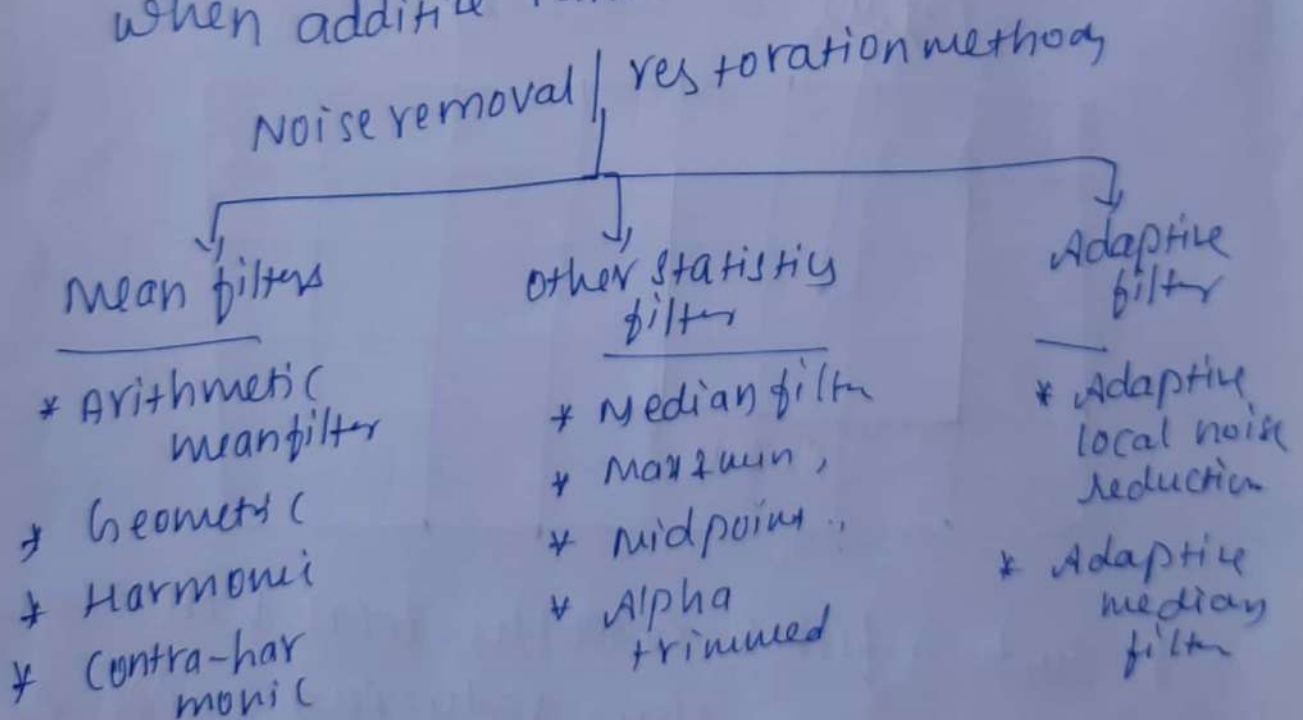 when additive
Noise removal / restoration methods
Mean filters
* Arithmetic
mean filter
* Geometric
* Harmonic
* Contra-har
monic
Other statistics
filter
* Median filter
* Max & min ,,
* Midpoint ,,
* Alpha
trimmed
Adaptive
filter
* Adaptive
local noise
reduction
* Adaptive
median
filter